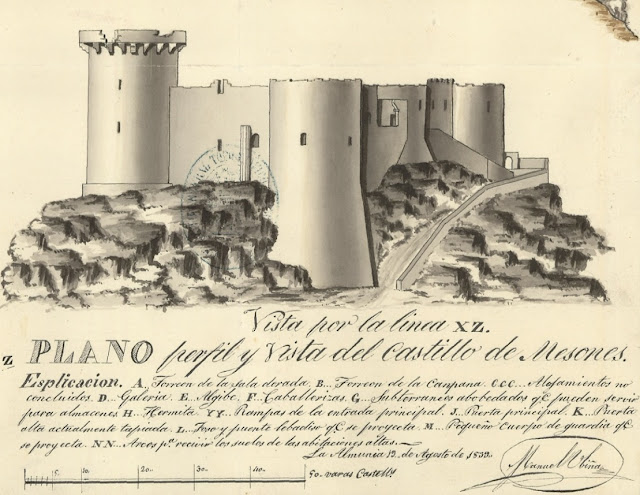 Vista por la linea XZ.
Z PLANO perfil y Vista del Castillo de Mesones.
Esplicacion. A, Torreon de la sala dorada. B... Torreon de la Canpana. C.C.C. Alojamientos no
concluidos. D.. Galeria. E... Algibe. F... Caballerizas. G.. Subterraneos abobedados qe. pueden servir
para almacenes. H.. Hermita. YY.. Rampas de la entrada principal. J.. Puerta principal. K.. Puerta
alta actualmente tapiada. L.. Foso y puente lebadizo qe. se proyecta. M... Pequeño cuerpo de guardia qe.
se proyecta. NN.. Arcos pa. recivir los suelos de las abitaciones altas.
La Almunia 19. de Agosto de 1839.
5.. 10.. 20.. 30.. 40.. 50. varas Castells.
Manuel Ubiña